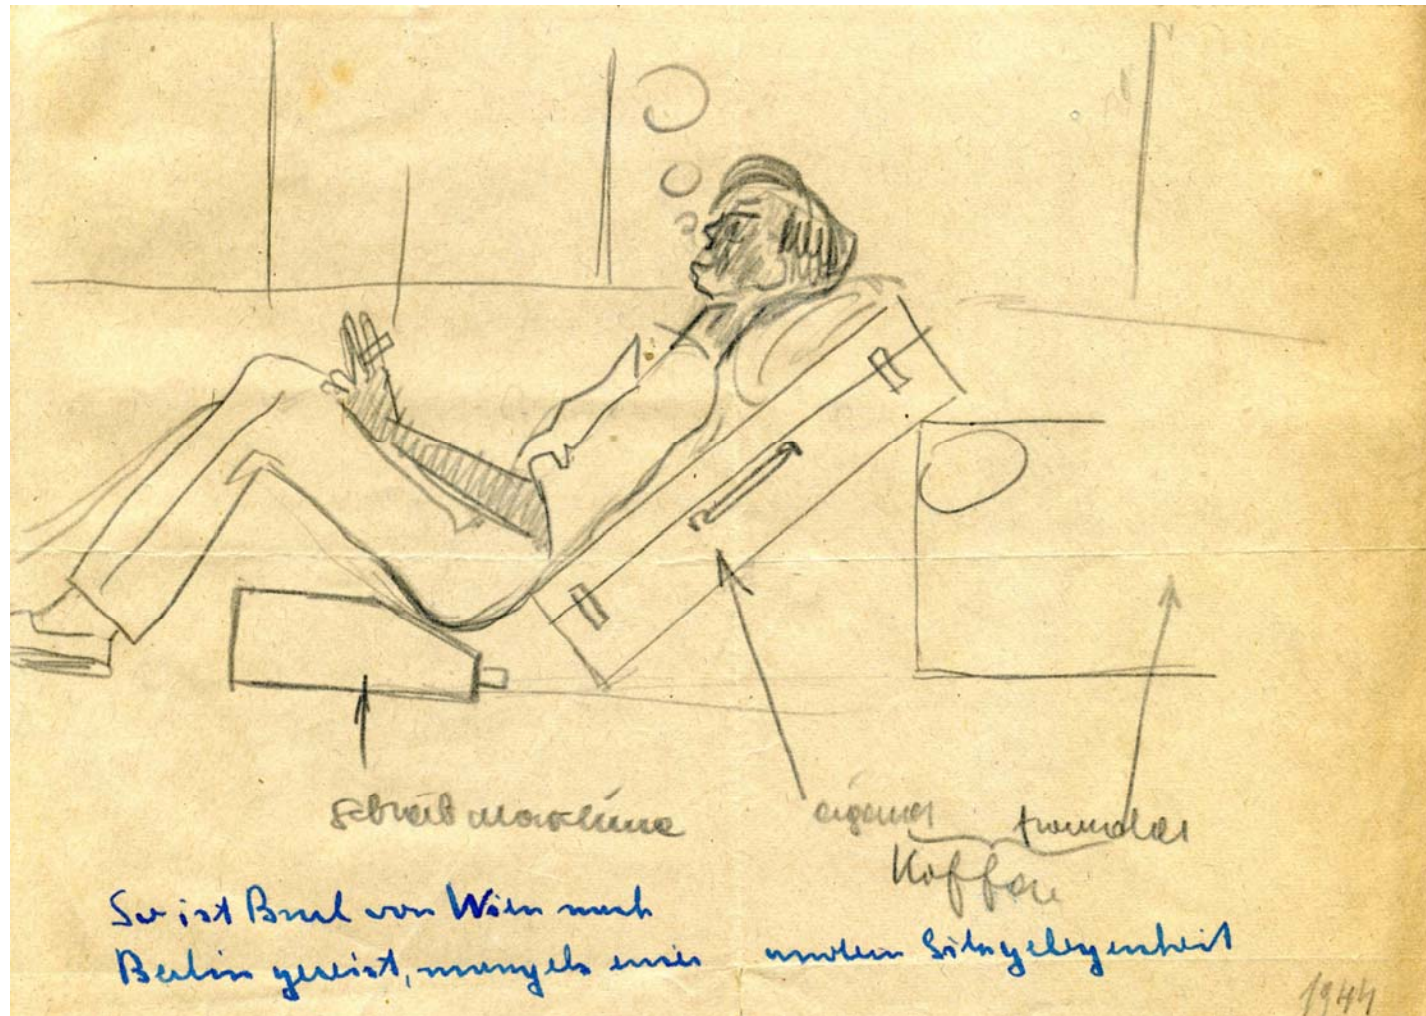 Schreibmaschine
eigener fremder
Koffer
So ist von Wien nach
Berlin gereist, mangels einer andern Sitzgelegenheit
1944